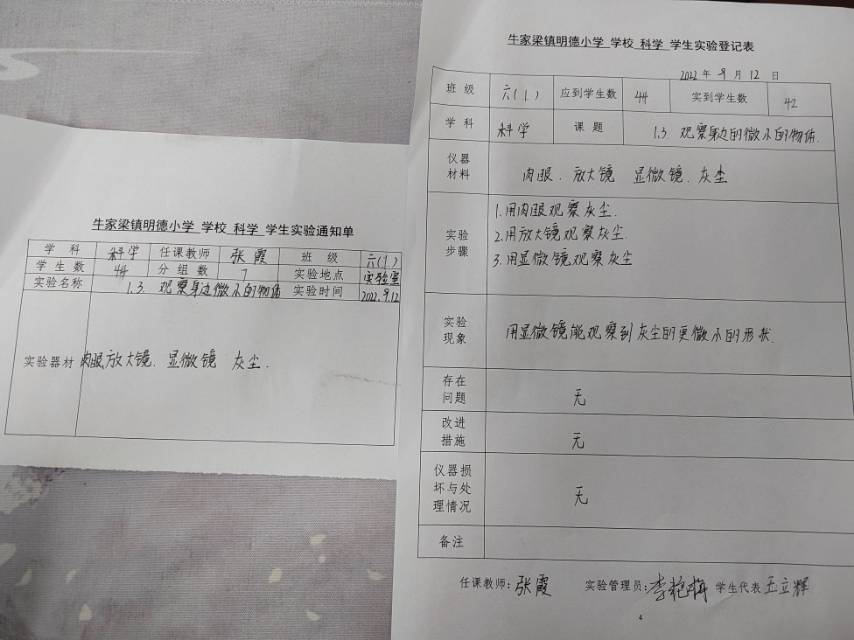 牛家梁镇明德小学 学校 科学 学生实验通知单
学科 科学 任课教师 张霞 班级 六(1)
学生数 44 分组数 7 实验地点 实验室
实验名称 1.3. 观察身边微小的物体 实验时间 2022.9.12
实验器材 肉眼放大镜、显微镜 灰尘.
牛家梁镇明德小学 学校 科学 学生实验登记表
2022 年 9 月 12 日
班级 六(1) 应到学生数 44 实到学生数 42
学科 科学 课题 1.3 观察身边的微小的物体.
仪器材料 肉眼、放大镜 显微镜、灰尘
实验步骤
1.用肉眼观察灰尘.
2.用放大镜观察灰尘.
3.用显微镜观察灰尘
实验现象 用显微镜能观察到灰尘的更微小的形状.
存在问题 无
改进措施 无
仪器损坏与处理情况 无
备注
任课教师:张霞 实验管理员:李艳梅 学生代表 王立辉
4